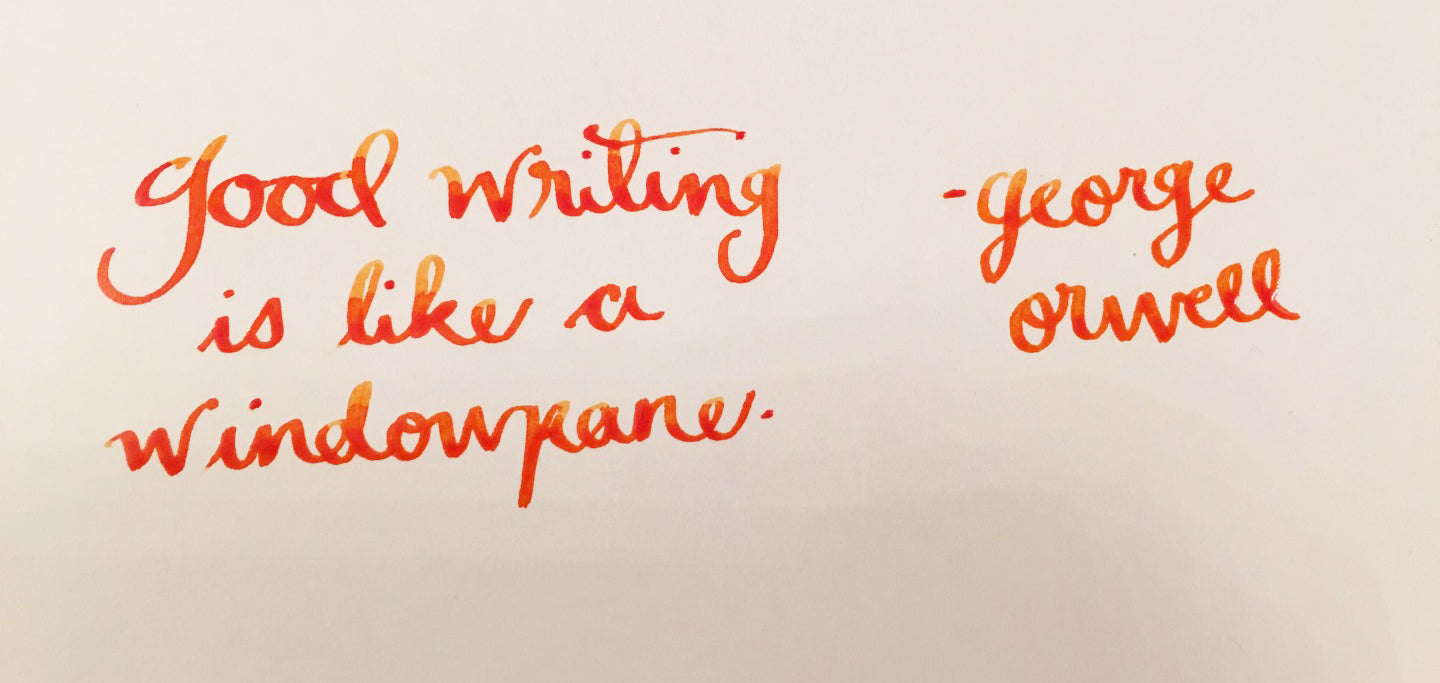 good writing
is like a
windowpane.
- george
orwell